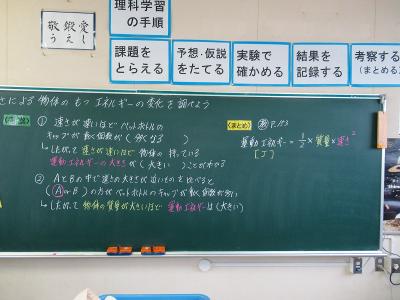 理科学習
の手順
敬鍛愛
うえし
課題を
とらえる
予想・仮説
をたてる
実験で
確かめる
結果を
記録する
考察する
(まとめる)
さによる物体のもつエネルギーの変化を調べよう
① 速さが速いほどペットボトルの
キャップが動く回数が(多くなる)
↳したがって速さが速いほど物体の持っている
運動エネルギーの大きさが(大きい)ことがわかる
② AとBの中で速さの大きさが近いものを比べると
(A or B)の方がペットボトルのキャップが動く回数が多い
↳したがって物体の質量が大きいほど運動エネルギーは(大きい)
〈まとめ〉 P.113
運動エネルギー = 1/2 × 質量 × 速さ²
[J]